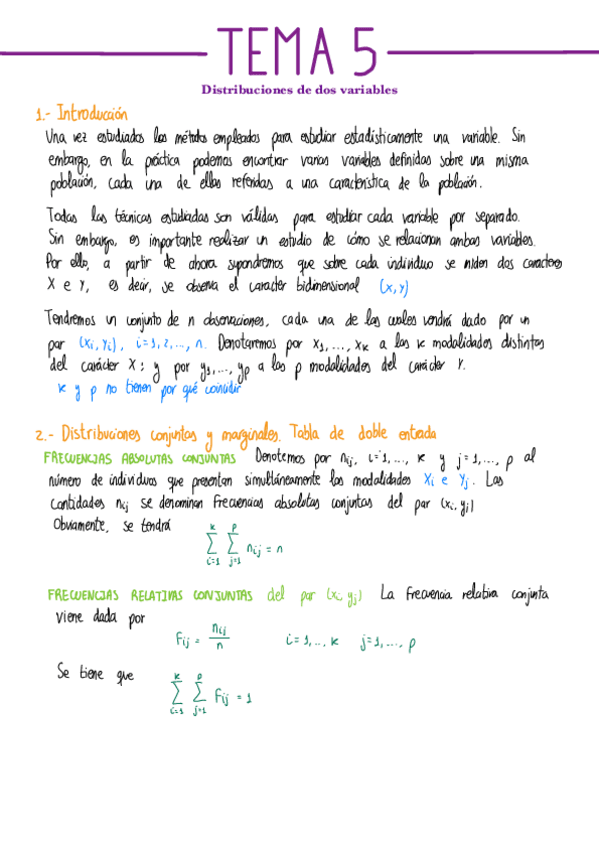 TEMA 5
Distribuciones de dos variables
1.- Introducción
Una vez estudiados los métodos empleados para estudiar estadísticamente una variable. Sin
embargo, en la práctica podemos encontrar varias variables definidas sobre una misma
población, cada una de ellas referidas a una característica de la población.
Todas las técnicas estudiadas son válidas para estudiar cada variable por separado.
Sin embargo, es importante realizar un estudio de cómo se relacionan ambas variables.
Por ello, a partir de ahora supondremos que sobre cada individuo se miden dos caracteres
X e Y, es decir, se observa el caracter bidimensional (X,Y)
Tendremos un conjunto de n observaciones, cada una de las cuales vendrá dado por un
par (xi, yi), i=1,2,..., n. Denotaremos por x1,..., xk a las k modalidades distintas
del carácter X; y por y1,..., yp a las p modalidades del carácter Y.
k y p no tienen por qué coincidir
2.- Distribuciones conjuntas y marginales. Tabla de doble entrada
FRECUENCIAS ABSOLUTAS CONJUNTAS Denotemos por nij, i=1,..., k y j=1,..., p al
número de individuos que presentan simultáneamente las modalidades Xi e Yj. Las
cantidades nij se denominan frecuencias absolutas conjuntas del par (xi, yj)
Obviamente, se tendrá
k p
∑ ∑ nij = n
i=1 j=1
FRECUENCIAS RELATIVAS CONJUNTAS del par (xi, yj) La frecuencia relativa conjunta
viene dada por
fij = nij/n i=1,..., k j=1,..., p
Se tiene que
k p
∑ ∑ fij = 1
i=1 j=1